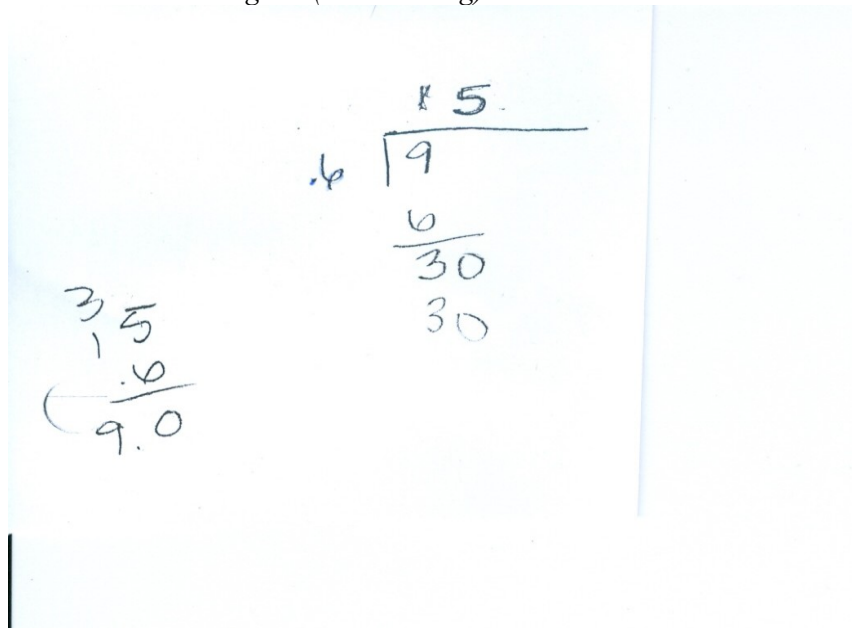 15
.6 9
6
30
30
3
15
.6
9.0